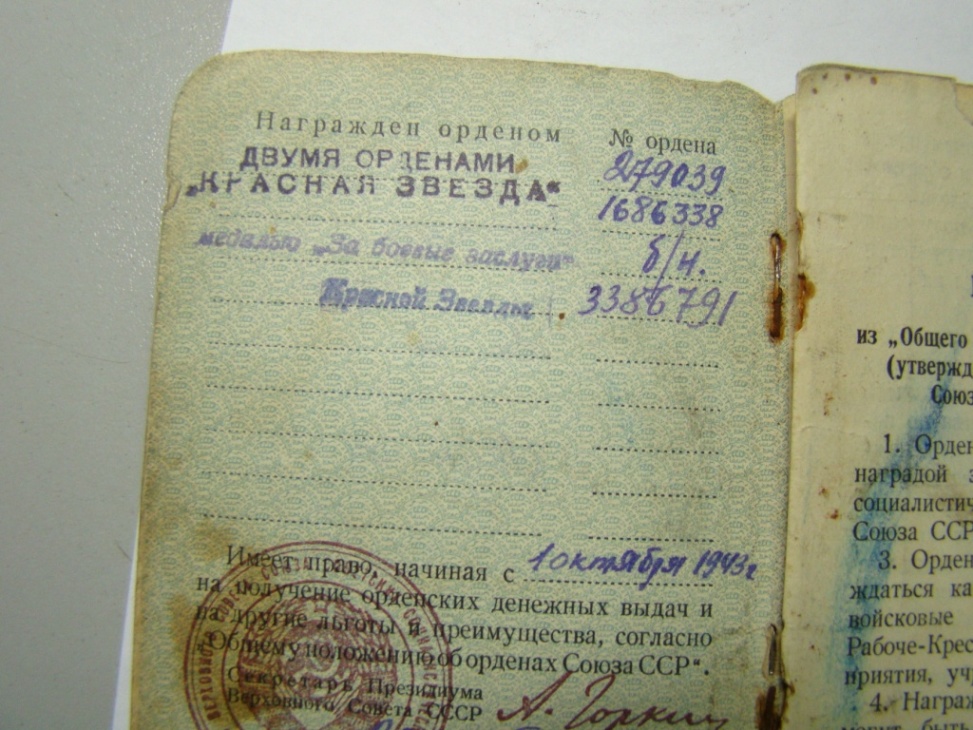 Награжден орденом № ордена
ДВУМЯ ОРДЕНАМИ 279039
„КРАСНАЯ ЗВЕЗДА“ 1686338
медалью „За боевые заслуги“ б/н.
Красной Звезды 3386791
Имеет право, начиная с 1 октября 1943 г
на получение орденских денежных выдач и
на другие льготы и преимущества, согласно
„Общему положению об орденах Союза ССР“.
Секретарь Президиума
Верховного Совета СССР А. Горкин
из „Общего
(утвержд
Союз
1. Орден
наградой з
социалистич
Союза ССР
3. Орден
ждаться ка
войсковые
Рабоче-Крес
приятия, уч
4. Награж
могут быть